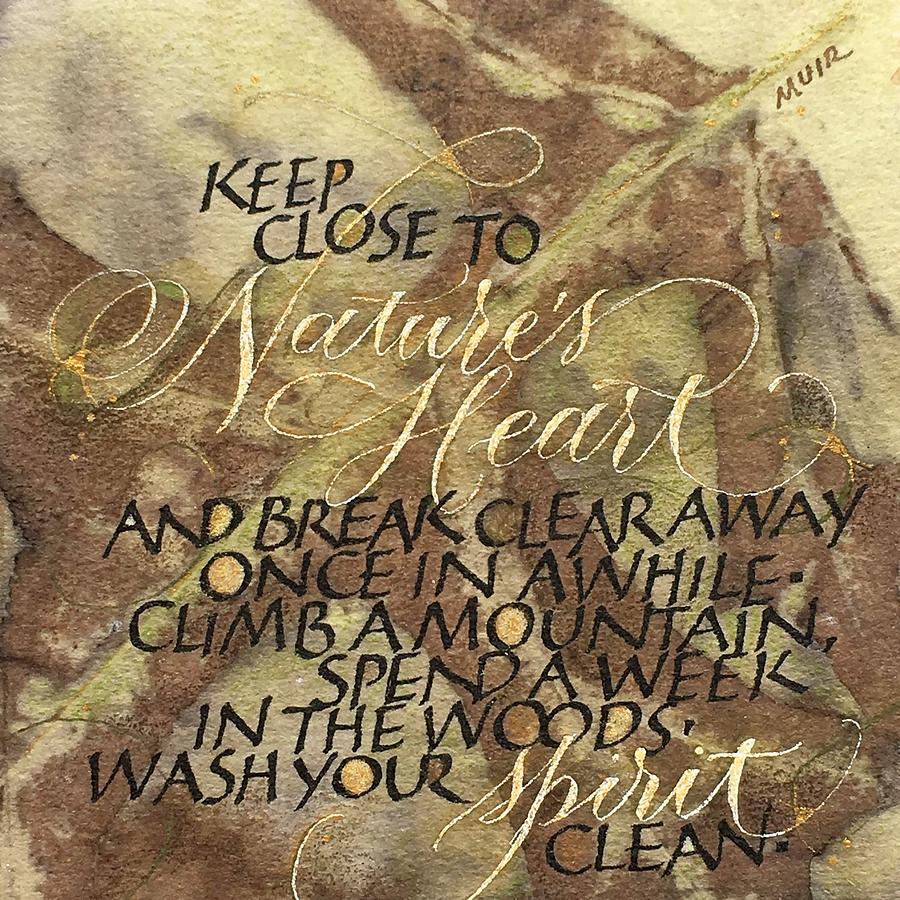 MUIR
KEEP
CLOSE TO
Nature's
Heart
AND BREAK CLEAR AWAY
ONCE IN AWHILE·
CLIMB A MOUNTAIN,
SPEND A WEEK
IN THE WOODS·
WASH YOUR spirit
CLEAN·